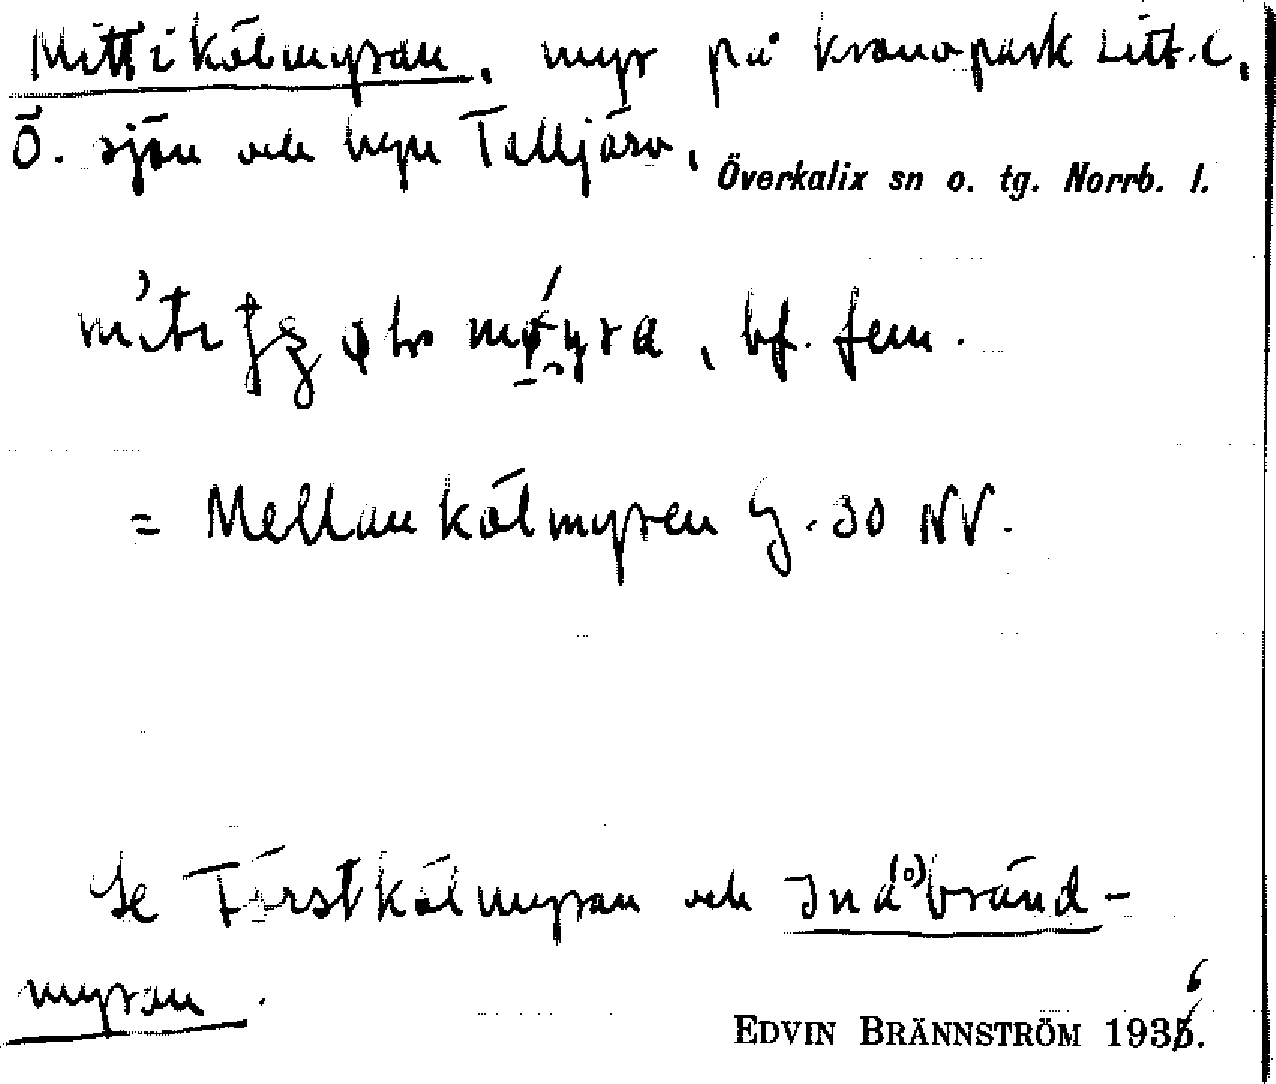 Mittikälmyran, myr på kronopark Litt. C,
Ö. sjön och byn Talljärv,
Överkalix sn o. tg. Norrb. l.
bf. fem.
= Mellankälmyren G. 30 NV.
Se Först kälmyran och Inåbränd-
myran.
EDVIN BRÄNNSTRÖM 1936.